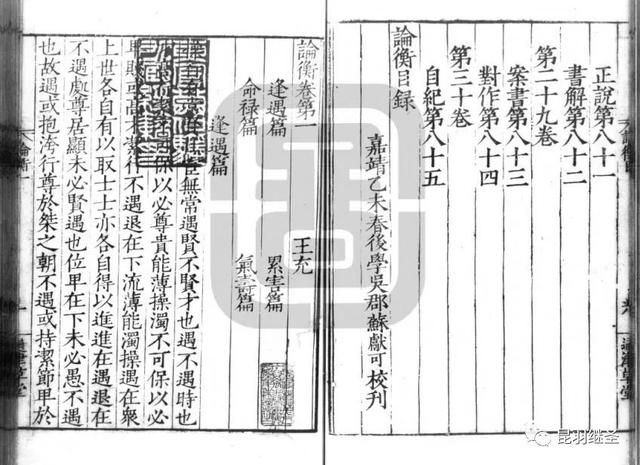 正說第八十一
書解第八十二
第二十九卷
案書第八十三
對作第八十四
第三十卷
自紀第八十五
論衡目録
嘉靖乙未春後學吳郡蘇獻可校刊
論衡卷第一
王充
逢遇篇
累害篇
命禄篇
氣壽篇
逢遇篇
無常遇賢不賢才也遇不遇時也
保以必尊貴能薄操濁不可保以必
或高才
行不遇退在下流薄能濁操遇在衆
上世各自有以取士士亦各自得以進進在遇退在
不遇處尊居顯未必賢遇也位卑在下未必愚不遇
也故遇或抱洿行尊於桀之朝不遇或持潔節卑於
昆羽继圣